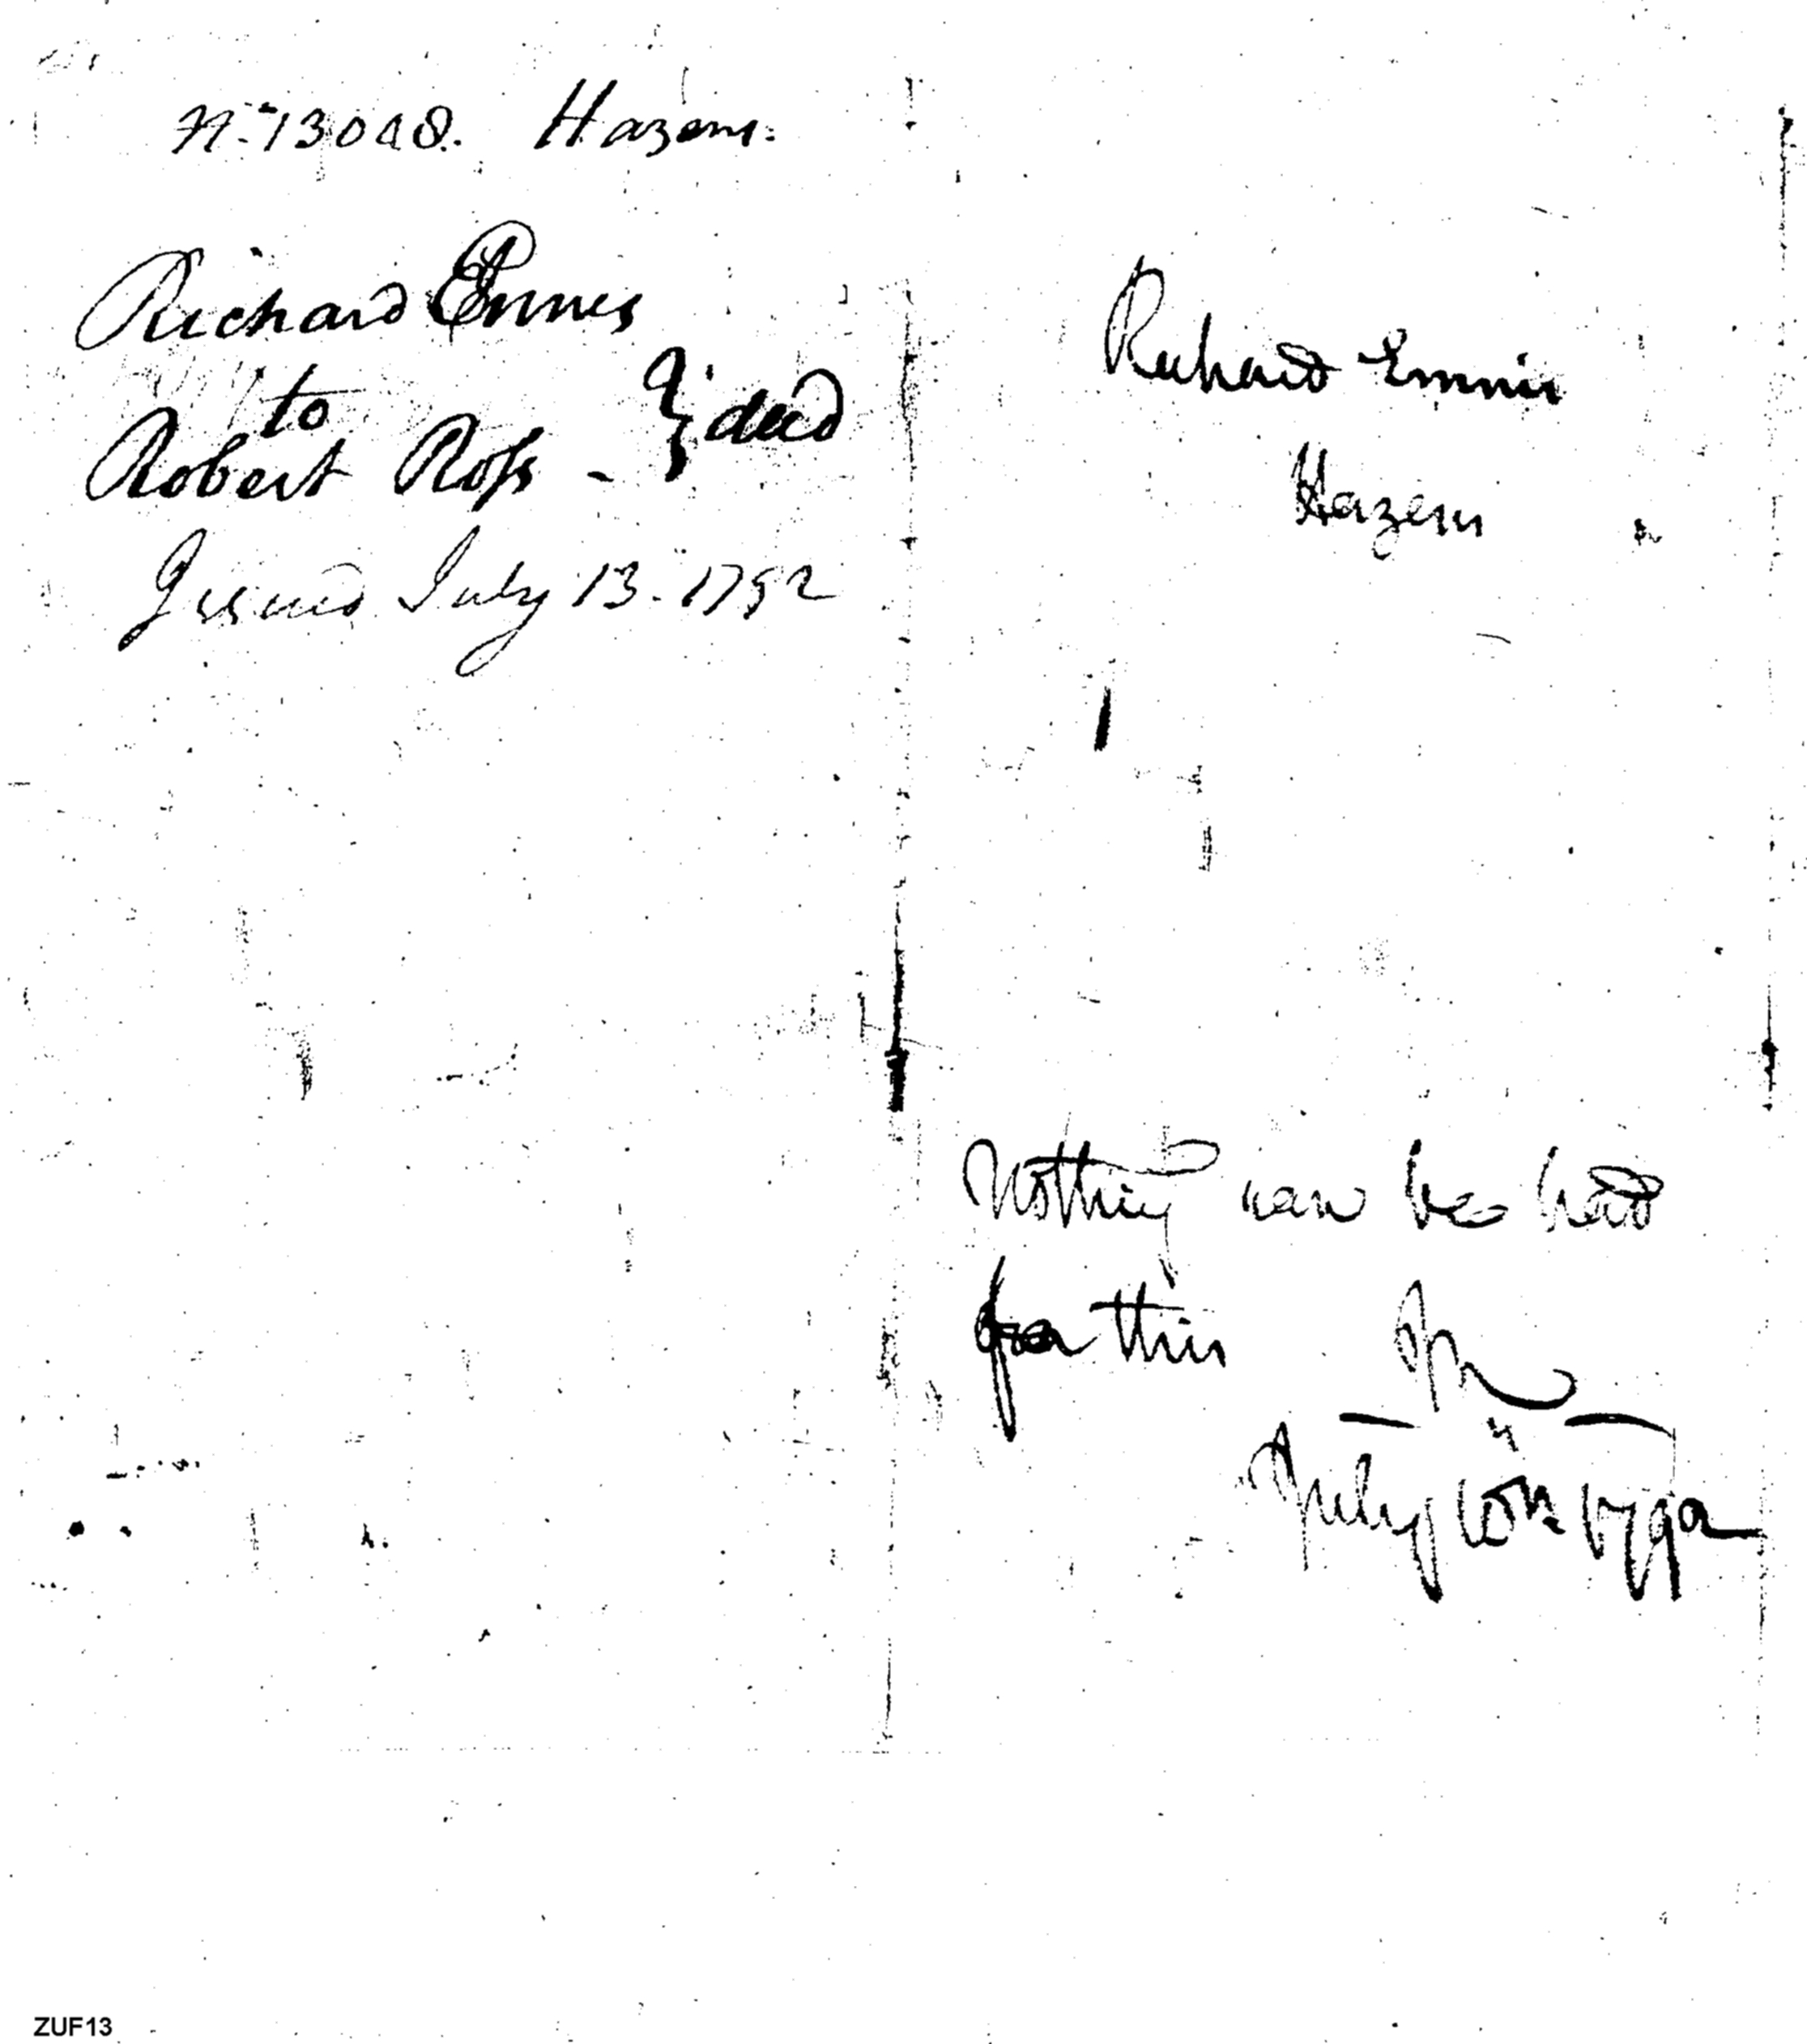 No. 13048. Hazens.
Richard Ennes
to
Robert Ross - } deed
Issued July 13. 1792
Richard Ennis
Hazens
Nothing can be had
for this
July 10th 1792
ZUF13